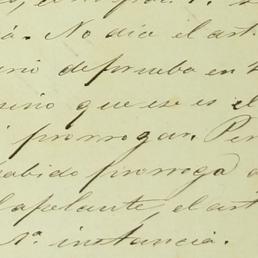 á. No dice el art.
de prueba en
sino que ese es el
prorrogar. Per
cabido prorroga
apelante, el art
1ª instancia.